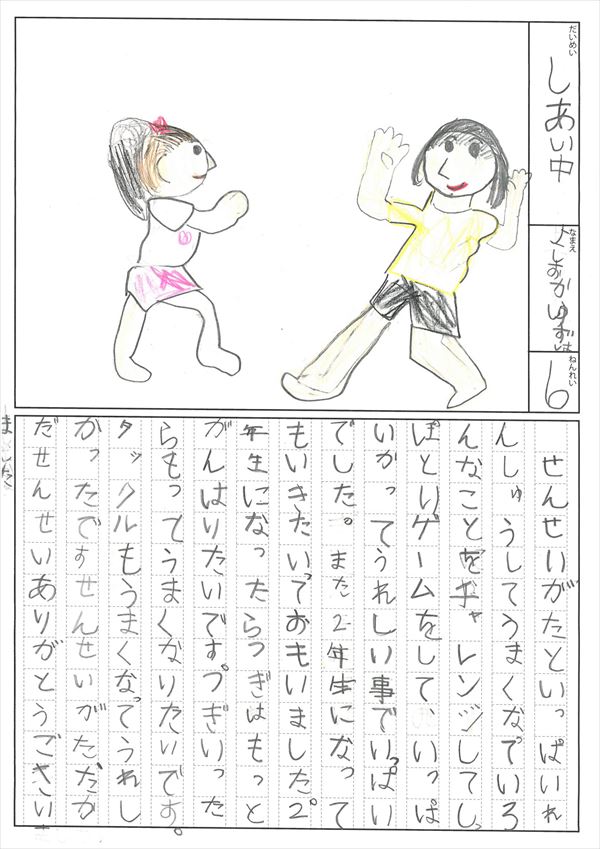 だいめい
しあい中
なまえ
よしおかゆずは
ねんれい
6
せんせいがたといっぱいれ
んしゅうしてうまくなていろ
んなことをチャレンジしてしっ
ぽとりゲームをして、いっぱ
いかってうれしい事でいっぱい
でした。また2年生になって
もいきたいっておもいました。2
年生になったらつぎはもっと
がんはりたいです。つぎいった
らもってうまくなりたいです。
タックルもうまくなってうれし
かったですせんせいがただか
だせんせいありがとうごさい
ました